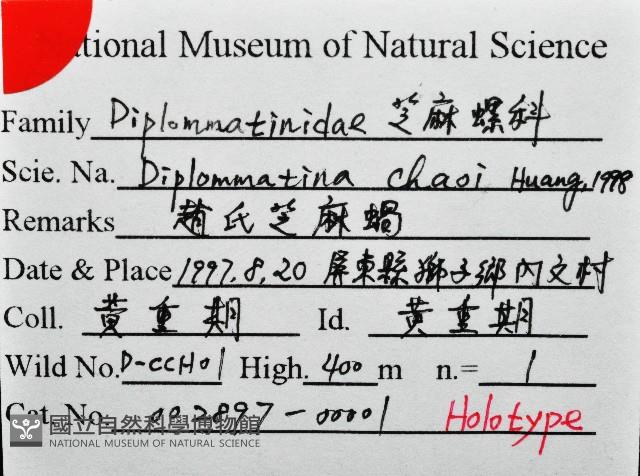 National Museum of Natural Science
Family Diplommatinidae 芝麻螺科
Scie. Na. Diplommatina chaoi Huang, 1998
Remarks 趙氏芝麻蝸
Date & Place 1997.8.20 屏東縣獅子鄉內文村
Coll. 黃重期 Id. 黃重期
Wild No. D-CCH01 High. 400 m n.= 1
Cat. No. 002897-00001 Holotype
國立自然科學博物館
NATIONAL MUSEUM OF NATURAL SCIENCE